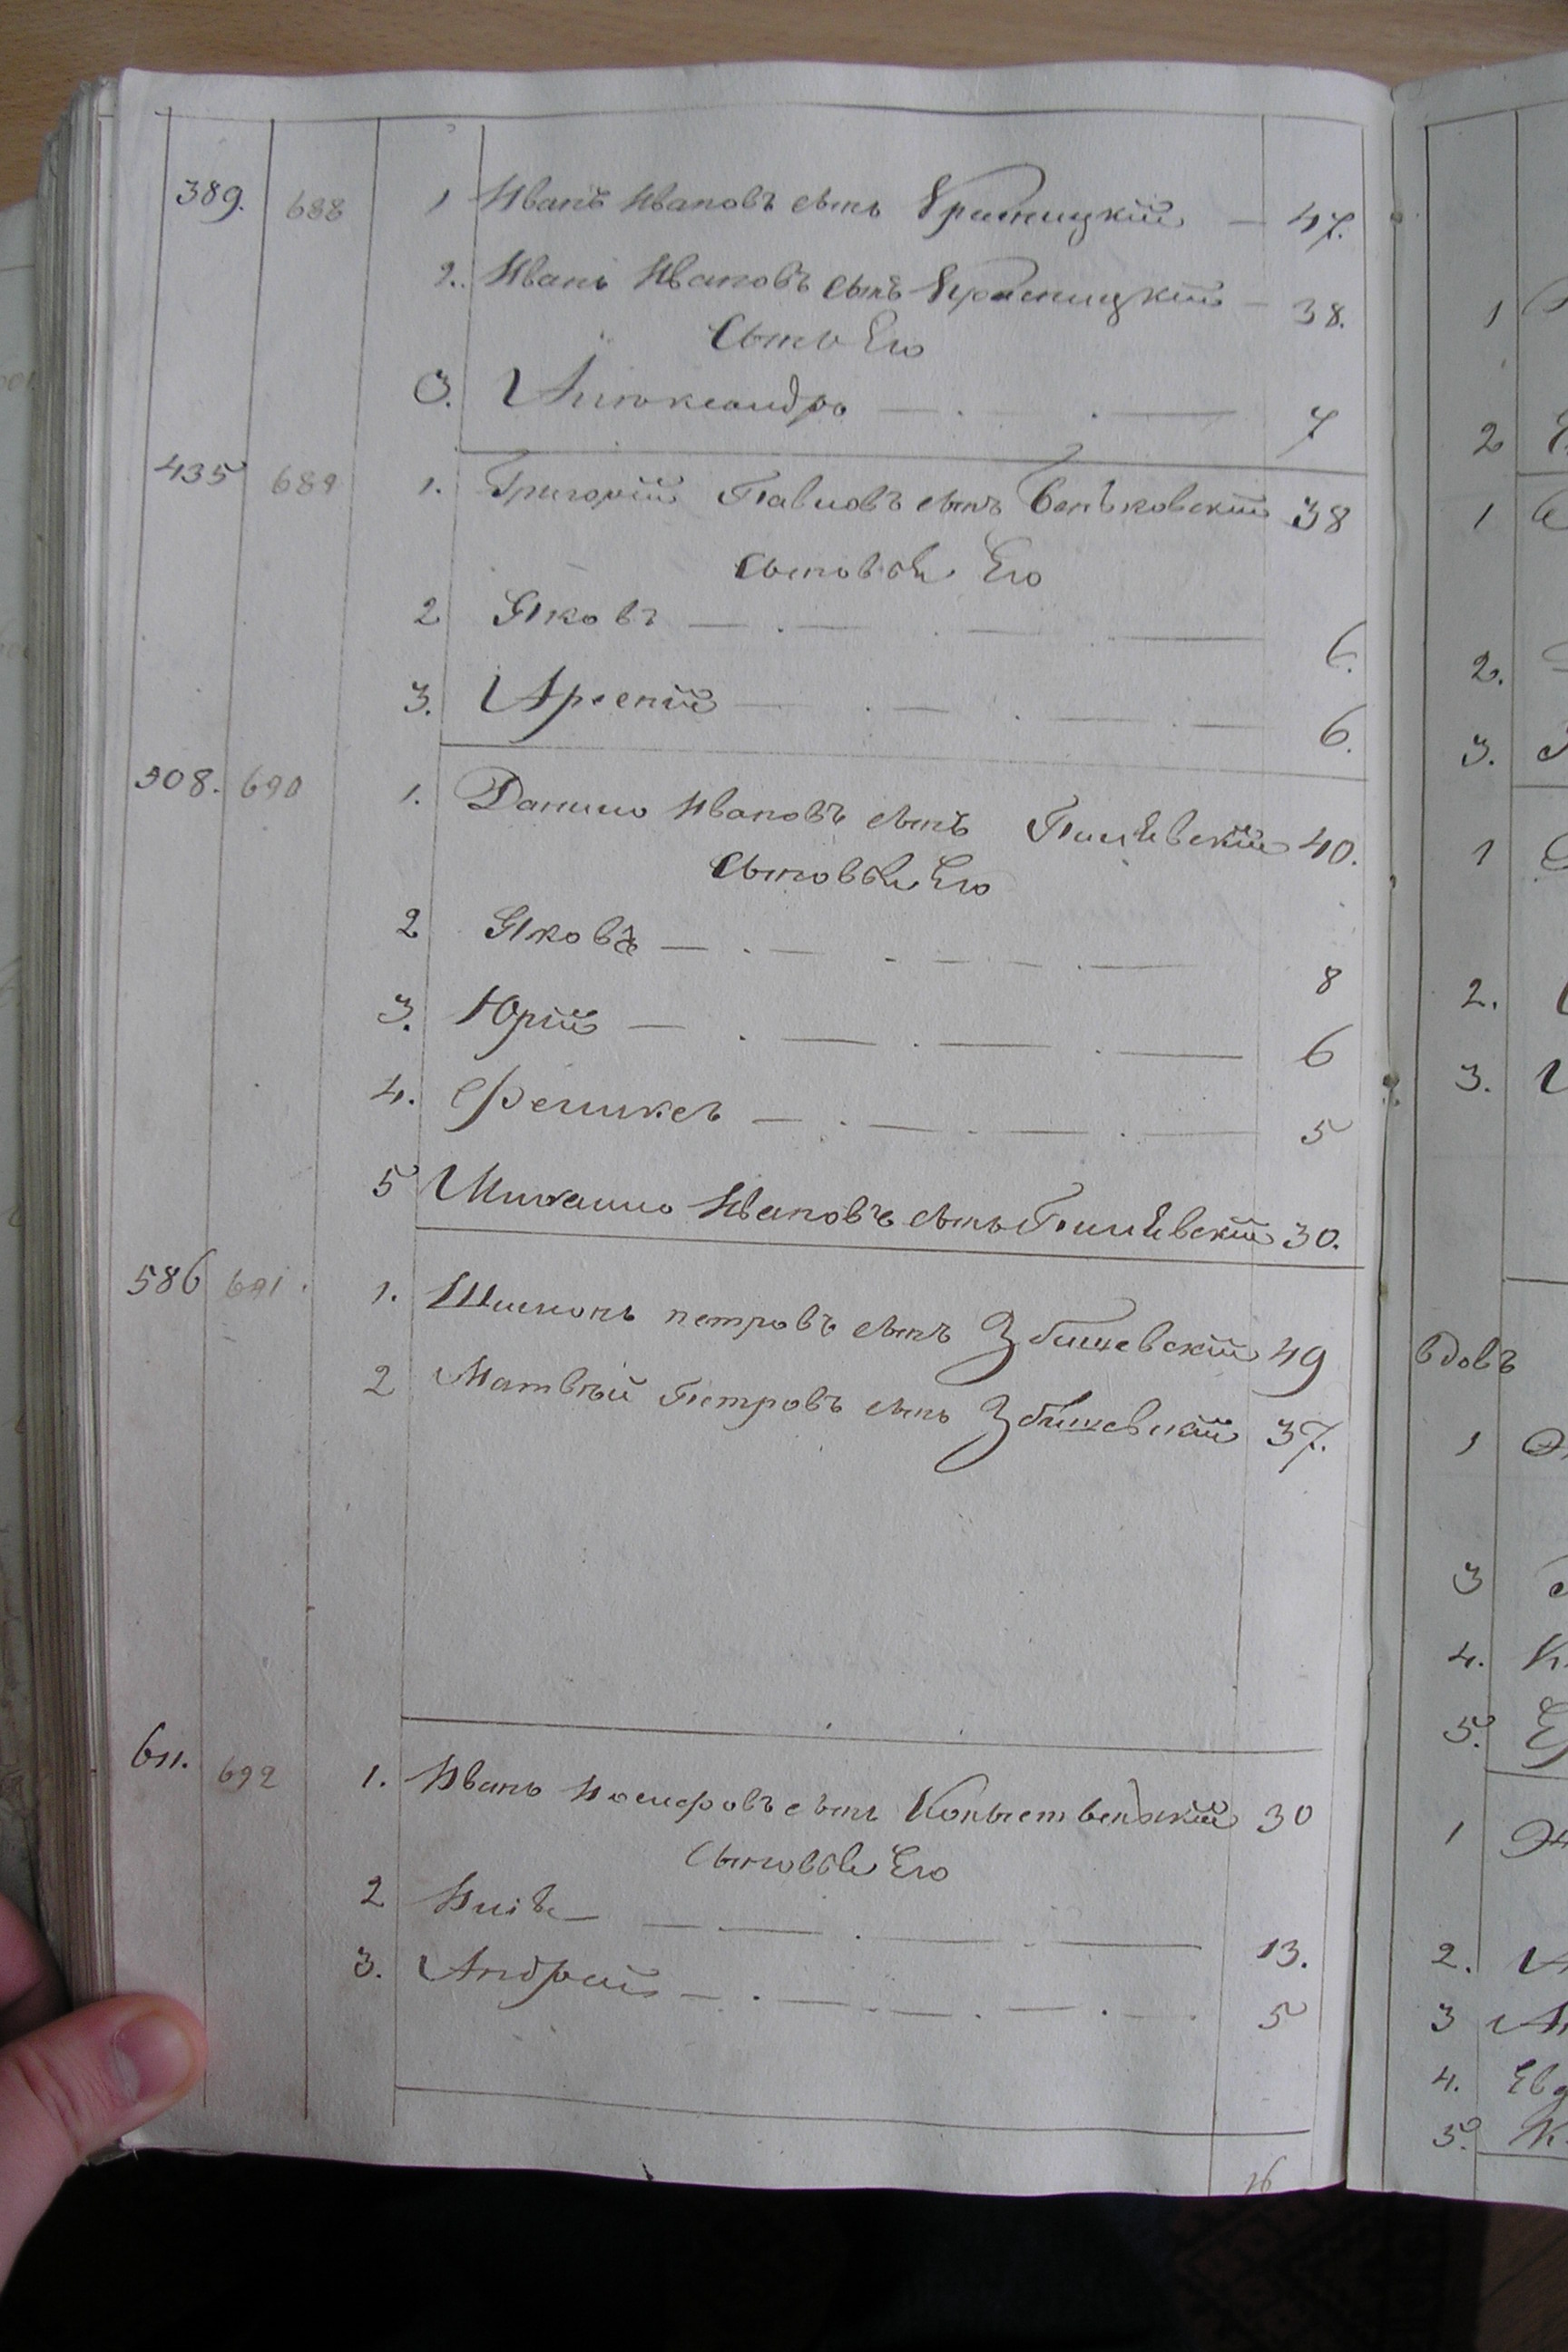 389. 688 1 Иванъ Ивановъ сынъ 47.
2. Иванъ Ивановъ сынъ 38.
Сынъ Его
3. Александръ 7
435 689 1. Григорій Павловъ сынъ Беньковскій 38
Сыновья Его
2 Яковъ 6.
3. Арсеній 6.
508. 690 1. Данило Ивановъ сынъ Пилѣвскій 40.
Сыновья Его
2 Яковъ 8
3. Юрій 6
4. Феликсъ 5
5 Михайло Ивановъ сынъ Пилѣвскій 30.
586 691. 1. Шимонъ петровъ сынъ Збышевскій 49
2 Матвѣй Петровъ сынъ Збышевскій 37.
611. 692 1. Иванъ Іосифовъ сынъ 30
Сыновья Его
2 13.
3. Андрей 5
16
1
2
1
2.
3.
1
2.
3.
вдовъ
1
3
4.
5.
1
2.
3
4. Евд
5.